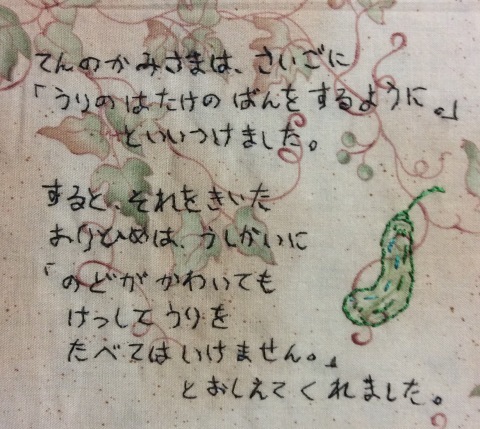 てんのかみさまは、さいごに
「うりのはたけのばんをするように。」
といいつけました。
すると、それをきいた
おりひめは、うしかいに
「のどがかわいても
けっしてうりを
たべてはいけません。」
とおしえてくれました。